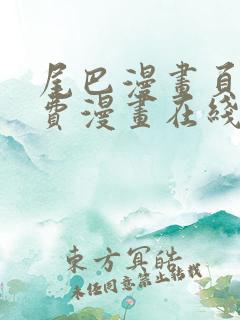 尾巴漫畫頁
費漫畫在綫
東方冥皓
未经同意禁止转载